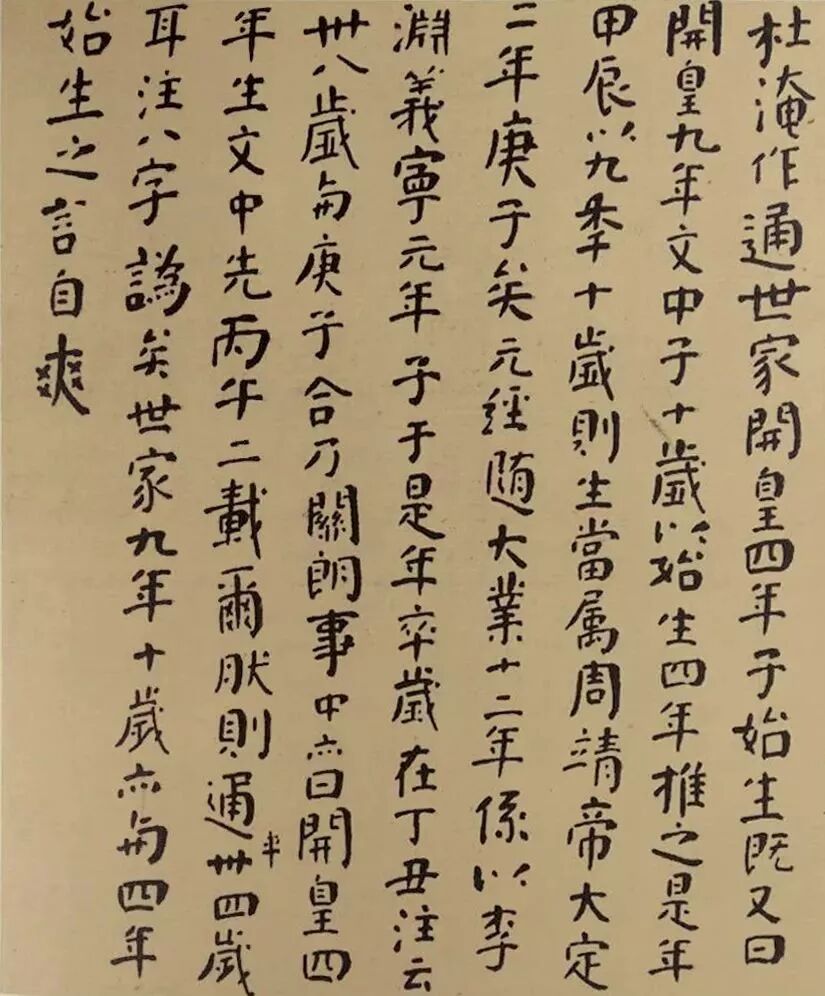 杜淹作通世家開皇四年子始生既又曰
開皇九年文中子十歲以始生四年推之是年
甲辰以九季十歲則生當属周靖帝大定
二年庚子矣元經隨大業十二年係以李
淵義寧元年子于是年卒歲在丁丑注云
卅八歲與庚子合乃關朗事中亦曰開皇四
年生文中先丙午二載爾肰則通卅四歲卒
耳注八字譌矣世家九年十歲亦與四年
始生之言自爽